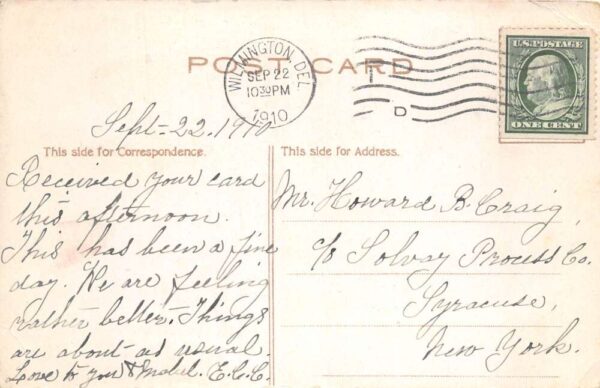 POST CARD
WILMINGTON, DEL.
SEP 22
10 30 PM
1910
D
U.S. POSTAGE
ONE CENT
Sept. 22, 1910
This side for Correspondence.
This side for Address.
Received your card
this afternoon.
This has been a fine
day. We are feeling
rather better. Things
are about as usual.
Love to you & Mabel. E.C.C.
Mr. Howard B. Craig,
c/o Solvay Process Co.
Syracuse,
New York.